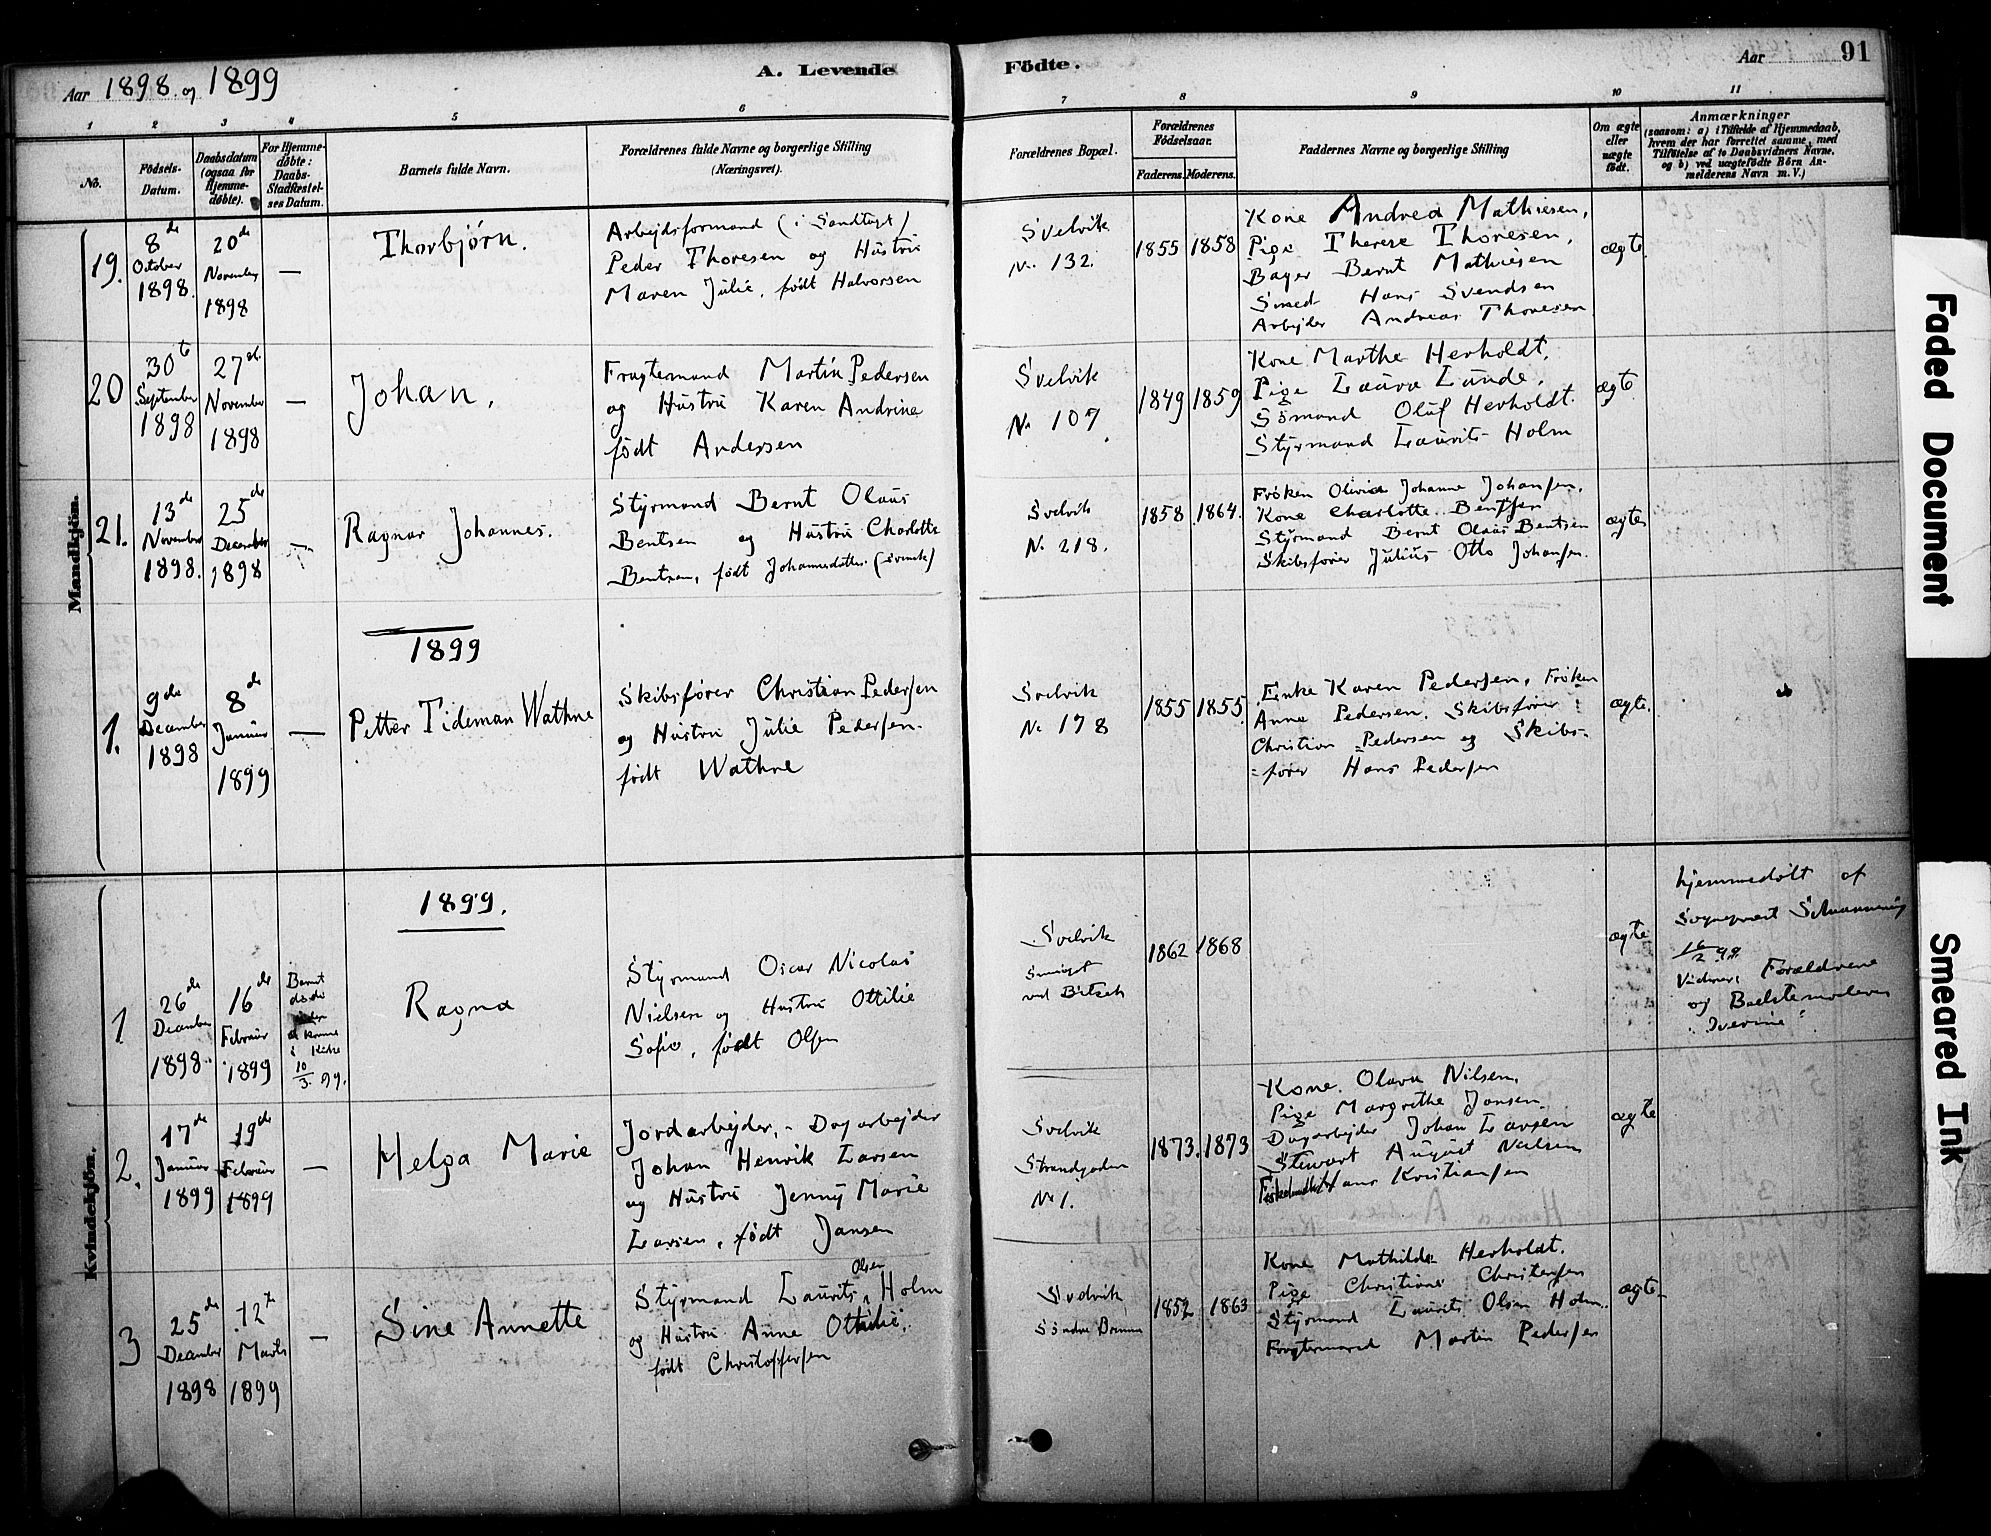 Aar 1898 og 1899
A. Levende
Födte.
Aar
91
1
2
3
4
5
6
7
8
9
10
11
No.
Födsels-
Datum.
Daabsdatum
(ogsaa for
Hjemme-
døbte).
For Hjemme-
døbte:
Daabs-
Stadfæstel-
ses Datum.
Barnets fulde Navn.
Forældrenes fulde Navne og borgerlige Stilling
(Næringsvei).
Forældrenes Bopæl.
Forældrenes
Födselsaar.
Faderens.
Moderens.
Faddernes Navne og borgerlige Stilling
Om ægte
eller
uægte
født.
Anmærkninger
(saasom: a) i Tilfælde af Hjemmedaab,
hvem der har forrettet samme, med
Tilføielse af to Daabsvidners Navne,
og b) ved uægtefödte Börn An-
melderens Navn m. V.)
Mandkjön.
19.
8de
October
1898.
20de
November
1898
—
Thorbjørn.
Arbejdsformand (i Sandtagt)
Peder Thoresen og Hustru
Maren Julie, født Halvorsen
Svelvik
No. 132.
1855
1858
Kone Andrea Mathiesen,
Pige Therese Thoresen,
Bager Bernt Mathiesen
Smed Hans Svendsen
Arbejder Andreas Thoresen
ægte.
20
30te
September
1898
27de
November
1898
—
Johan.
Fragtemand Martin Pedersen
og Hustru Karen Andrine
født Anderssen
Svelvik
No. 107.
1849
1859
Kone Marthe Herholdt,
Pige Laura Lunde,
Sömand Oluf Herholdt.
Styrmand Laurits Holm
ægte.
21.
13de
November
1898.
25de
December
1898
—
Ragnar Johannes.
Styrmand Bernt Olaus
Bentsen og Hustru Charlotte
Bentsen, født Johannesdatter (svensk)
Svelvik
No. 218.
1858
1864.
Frøken Olivia Johanne Johansen,
Kone Charlotte Bentsen
Styrmand Bernt Olaus Bentsen
Skibsfører Julius Otto Johansen.
ægte
1899
1.
9de
December
1898
8de
Januar
1899
—
Petter Tideman Wathne
Skibsfører Christian Pedersen
og Hustru Julie Pedersen
født Wathne
Svelvik
No 178
1855
1855.
Enke Karen Pedersen, Frøken
Anna Pedersen, Skibsfører
Christian Pedersen og Skibs-
-fører Hans Pedersen
ægte.
Kvindekjön.
1899.
1
26de
December
1898.
16de
Februar
1899
Barnet
døde
at komme
i Kirke
10/3 99.
Ragna
Styrmand Oscar Nicolai
Nielsen og Hustru Ottilie
Sofie, født Olsen
Svelvik
ved
1862
1868
ægte
hjemmedøbt af
Sogneprest
16/2 99.
Vidner: Forældrene
og
2.
17de
Januar
1899
19de
Februar
1899
—
Helga Marie
Jordarbejder, - Dagarbejder
Johan Henrik Larsen
og Hustru Jenny Marie
Larsen, født Jansen
Svelvik
Strandgaden
No 1.
1873.
1873
Kone Olava Nilsen,
Pige Margrethe Jansen
Dagarbejder Johan Larsen
Stewart August Nielsen
Hans Kristiansen
ægte
3
25de
December
1898
12te
Marts
1899
—
Sine Annette
Olsen
Styrmand Laurits Holm
og Hustru Anne Ottilie,
født Christoffersen
Svelvik
Söndre
1852
1863
Kone Mathilde Herholdt.
Pige Christiane Christensen
Styrmand Laurits Olsen Holm.
Fragtemand Martin Pedersen
ægte.
Faded Document
Smeared Ink